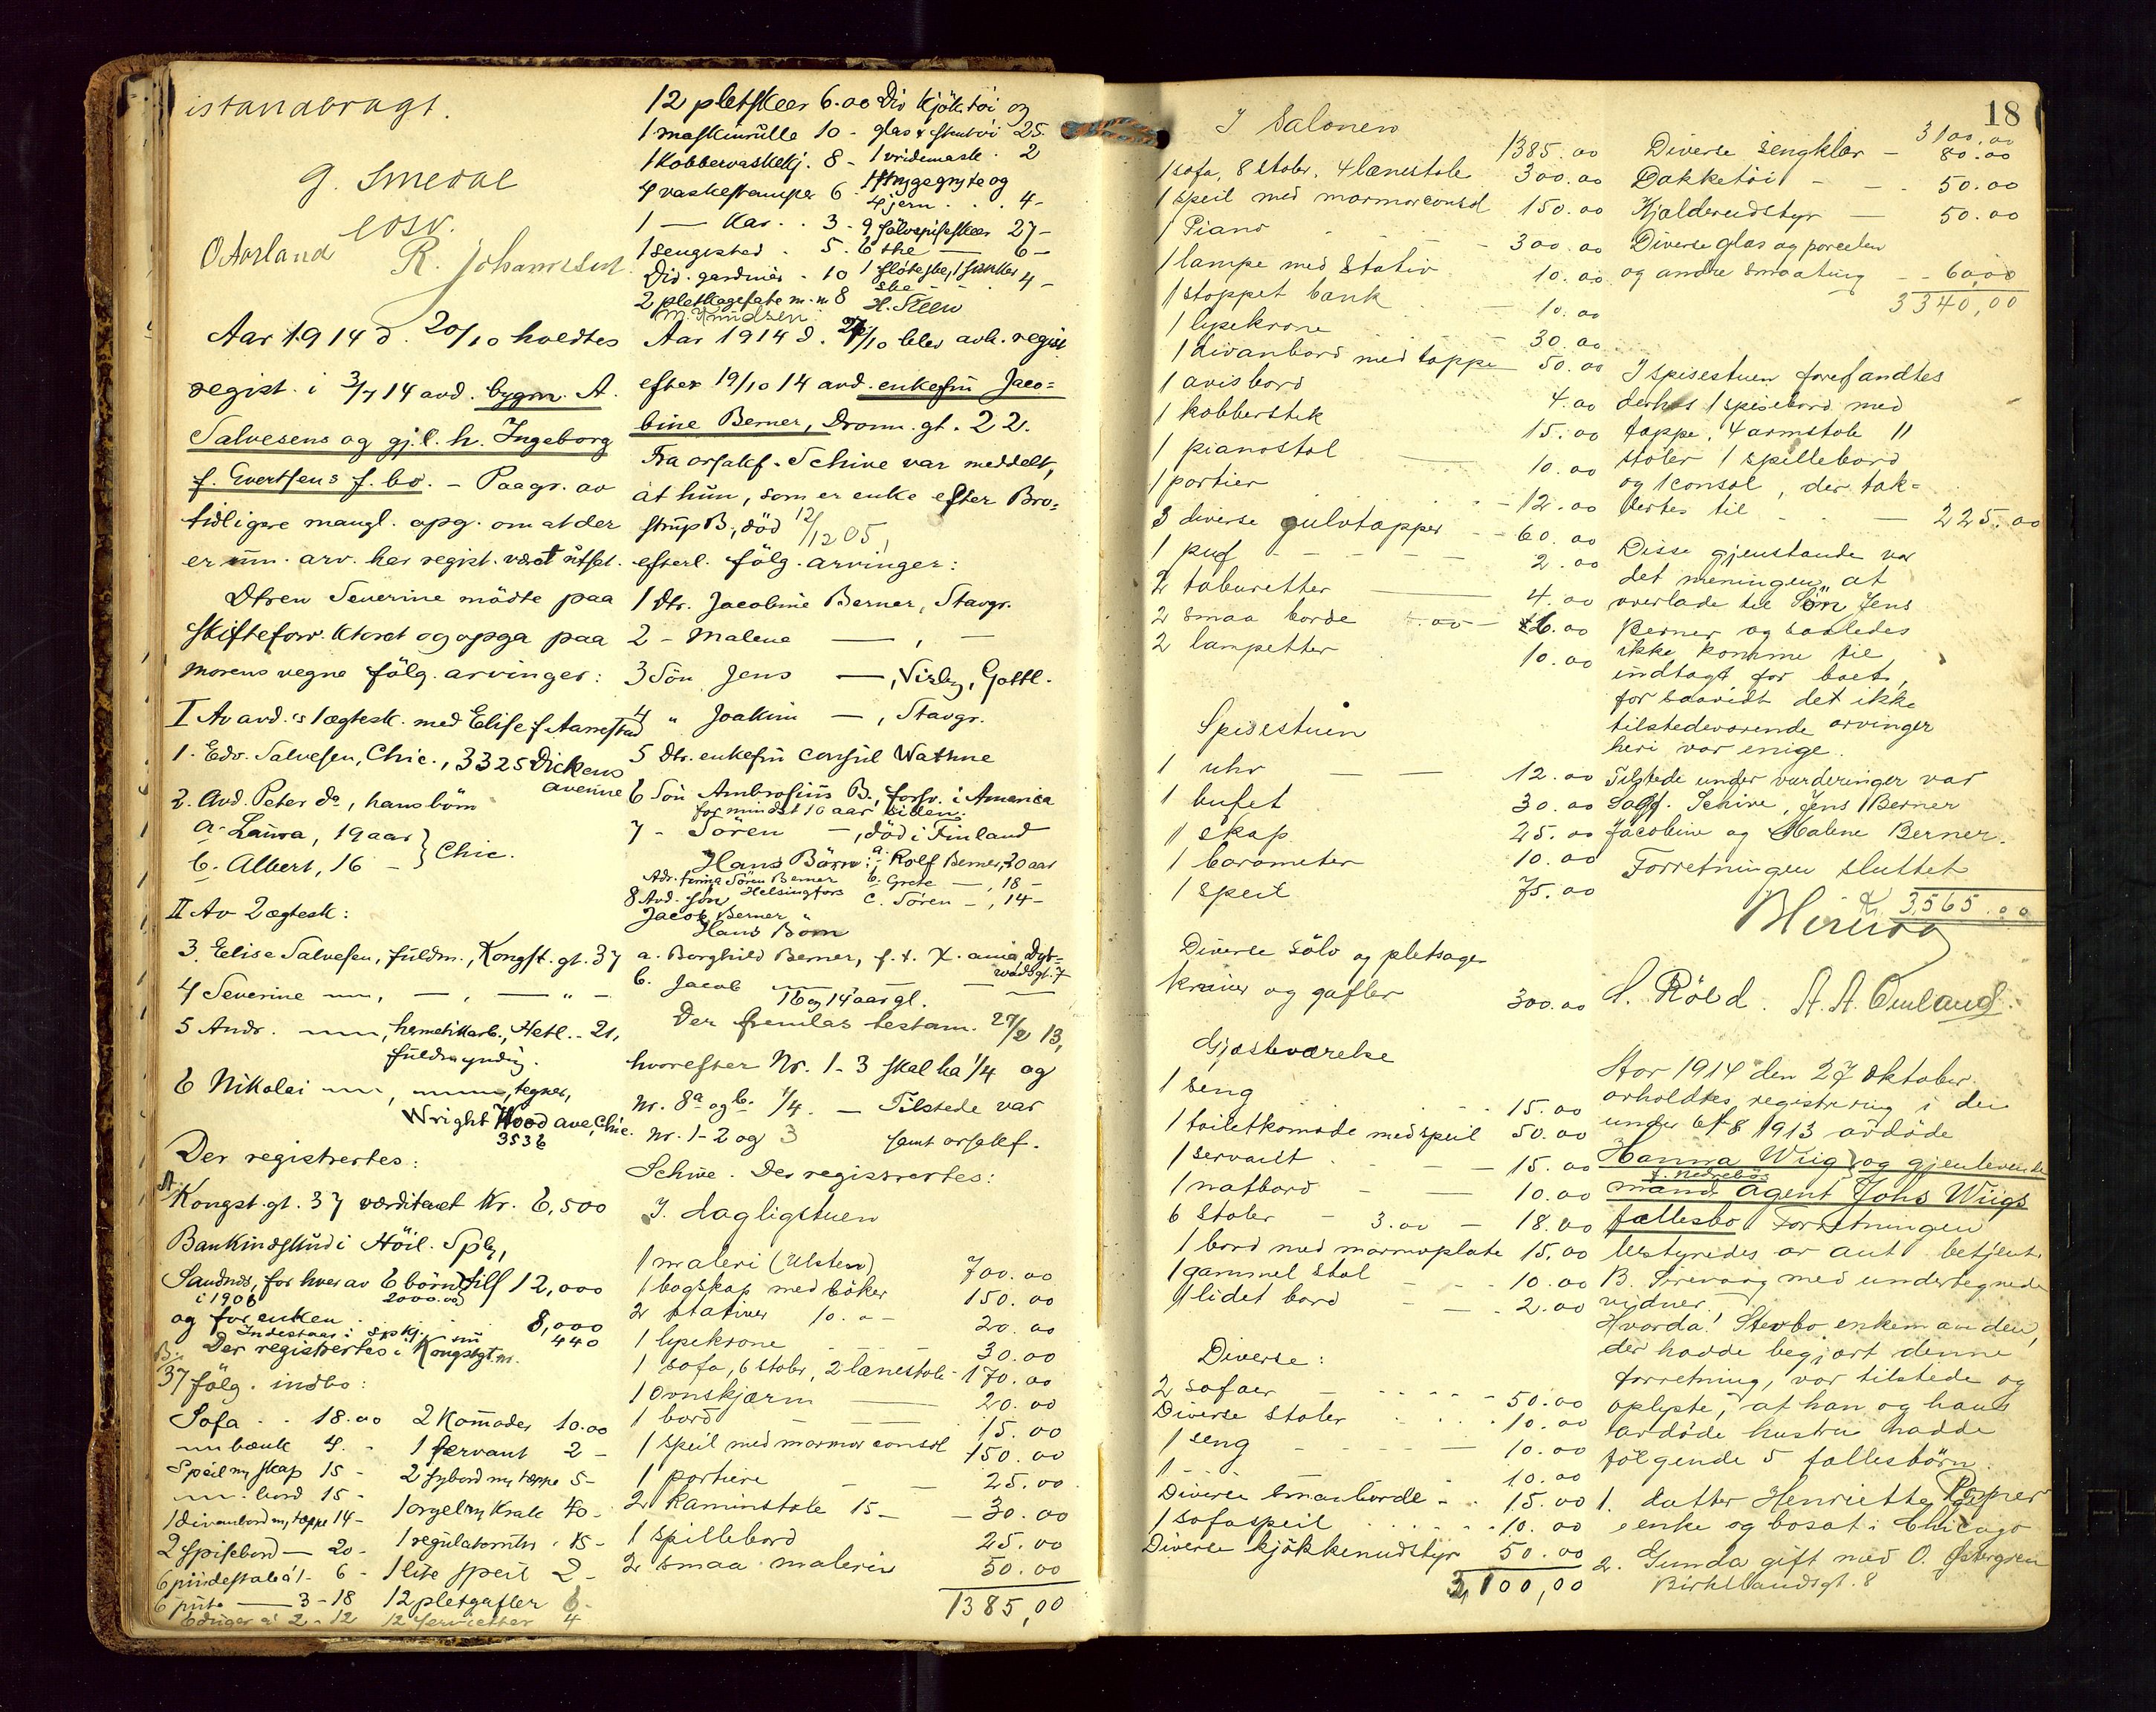 istandbragt.
G. Smedal
eosv.
O Aarland R. Johannesen.
Aar 1914 d. 20/10 holdtes
regist. i 3/7 14 avd. bygm. A.
Salvesens og gj.l. h. Ingeborg
f. Evertsens f. bo. - Paagr. av
tidligere mangl. opg. om at der
er um. arv. har regist. været utsat.
Dtren Severine mödte paa
Skifteforv. ktoret og opga paa
morens vegne fölg. arvinger:
I Av avd.s 1 ægtesk. med Elise f. Aanestad
1. Edv. Salvesen, Chic., 3325 Dickens
avenue
2. Avd. Peter do, hans börn
a. Laura, 19 aar
b. Albert, 16 - } Chic.
II Av 2 ægtesk:
3. Elise Salvesen, fuldm., Kongst. gt. 37
4 Severine — , — , — " -
5 Andr. — , hermetikarb., Hetl. - 21,
fuldmyndig.
6 Nikolai — , — , tegner,
Wright Wood ave, Chic.
3536
Der registrertes:
A. Kongst. gt. 37 værditaxt Kr. 6,500
Bankindskud i Höil. Spb,
Sandnes, for hver av 6 börn tils 12,000
i 1906 2000.00
og for enken . . 8,000
Indestaar i Spkj. 440
B. Der registrertes i Kongsgt. nr.
37 fölg. indbo:
Sofa . . 18.00 2 Komoder 10.00
— bænk 4. - 1 servant 2 -
Speil m/ skap 15 - 2 sybord m/ tæppe 5 -
— bord 15 -
1 divanbord m/ tæppe 14 - 1 orgel m/ krak 40 -
2 spisebord — 20 - 1 regulatoruhr . 15 -
6 pindestole á 1 - 6 - 1 lite speil 2 -
6 — 3 - 18 12 pletgafler 6 -
6 duger á 2 - 12 12 servietter 4
12 pletskeer 6.00 Div kjök. töi og
1 maskinrulle 10 - glas & stentöi 25.
1 Kobbervaskekj. 8 - 1 vridemask. 2
4 vaskestamper 6 . 1 strygegryte og
4 jern . . . 4 -
1 — Kar . . 3 - 9 sölvspiseskeer 27 -
1 sengested . 5 . 6 the — 6 -
Div. gardiner . 10 1 flöteske, 1 sukker
ske . . . 4 -
2 pletkagefate m.m. 8 H. Steen
M. Knudsen
Aar 1914 d. 27/10 blev avh. regist
efter 19/10 14 avd. enkefru Jaco=
bine Berner, Dronn. gt. 22.
Fra orsakf. Schive var meddelt,
at hun, som er enke efter Bro=
strup B., död 12/12 05,
efterl. fölg. arvinger:
1 dtr. Jacobine Berner, Stavgr.
2 - Malene — , —
3 Sön Jens — , Visby, Gottl.
4 " Joakim — , Stavgr.
5 dtr. enkefru consul Wathne
6 Sön Ambrosius B., forsv. i America
for mindst 10 aar siden.
7 - Sören — , död i Finland
Hans Börn: a. Rolf Berner, 20 aar
Adr. firma Sören Berner b. Grete — , 18 -
Helsingfors c. Sören - , 14 -
8 Avd. sön
Jacob Berner "
Hans Börn
a. Borghild Berner, f. t. X. ania, Dyb=
wadsgt. 7
b. Jacob — —
16 og 14 aar gl.
Der fremlas testam. 27/2 13,
hvorefter Nr. 1-3 skal ha 1/4 og
Nr. 8 a og b. 1/4. — Tilstede var
Nr. 1-2 og 3 samt orsakf.
Schive. Der registrertes:
I. dagligstuen
1 maleri (Ulsten) 700.00
1 bogskap med böker 150.00
2 stativer 10.00 20.00
1 lysekrone 30.00
1 sofa, 6 stoler, 2 lænestole - 170.00
1 ovnskjærm — 20.00
1 bord — 15.00
1 speil med marmor consol 150.00
1 portiere — — 25.00
2 kaminstole 15 — 30.00
1 spillebord 25.00
2 smaa malerier 50.00
1385,00
18
I Salonen
1385.00
1 sofa, 8 stoler, 4 lænestole 300.00
1 speil med marmorconsol 150.00
1 Piano - - - 300.00
1 lampe med Stativ 10.00
1 stoppet bænk 10.00
1 lysekrone 30.00
1 divanbord med tæppe 50.00
1 avisbord 4.00
1 kobberstik 15.00
1 pianostol — 10.00
1 portier . . . - 12.00
3 diverse gulvtæpper - - 60.00
1 puf - - - - 2.00
2 taburetter — 4.00
2 smaa borde 6.00
2 lampetter . 10.00
Spisestuen
1 uhr — — 12.00
1 bufet 30.00
1 skap 25.00
1 barometer 10.00
1 speil 75.00
Diverse sölv og pletsager
kniver og gafler 300.00
Gjæsteværelse
1 seng . . . 15.00
1 toiletkomode med speil 50.00
1 servant - - - 15.00
1 natbord - — 10.00
6 stoler - 3.00 - 18.00
1 bord med marmorplate 15,00
1 gammel stol - - - 10.00
1 lidet bord - - . 2.00
Diverse:
2 sofaer - - - - - 50.00
Diverse stoler . . . . 10.00
1 seng - - - - 10.00
1 - - 10.00
Diverse smaaborde - . 15.00
1 sofaspeil . . . . . 10.00
Diverse kjökkenudstyr 50.00
3,100,00
3100,00
Diverse sengklær - 80.00
Dækketöi - - - 50.00
Kjælderudstyr — 50.00
Diverse glas og porcelen
og andre smaating - - 60,00
3340,00
I spisestuen forefandtes
derhos 1 spisebord med
tæppe, 4 armstole 11
stoler 1 spillebord
og 1 consol, der tak=
sertes til - - — 225.00
Disse gjenstande var
det meningen at
overlade til Sön Jens
Berner og saaledes
ikke komme til
indtægt for boet,
for saavidt det ikke
tilstedeværende arvinger
heri var enige.
Tilstede under vurderingen var
Sagf. Schive, Jens Berner
Jacobine og Malene Berner.
Forretningen sluttet
K 3565.00
S. Röed. A. A. Omland.
Aar 1914 den 27 oktober
avholdtes registrering i den
under 6/8 1913 avdöde
Hanna Wiig og gjenlevende
f. Nedrebö
mand agent Johs Wiigs
fællesbo Forretningen
bestyredes av aut. betjent
B. Sirevaag med undertegnede
vidner.
Hvorda! Stervbo enkemanden,
der havde begjært denne
forretning, var tilstede og
oplyste, at han og hans
avdöde hustru havde
fölgende 5 fællesbörn.
1. datter Henriette
enke og bosat i Chicago
2. Gunda gift med O. Østergren
Birkelandsgt. 8